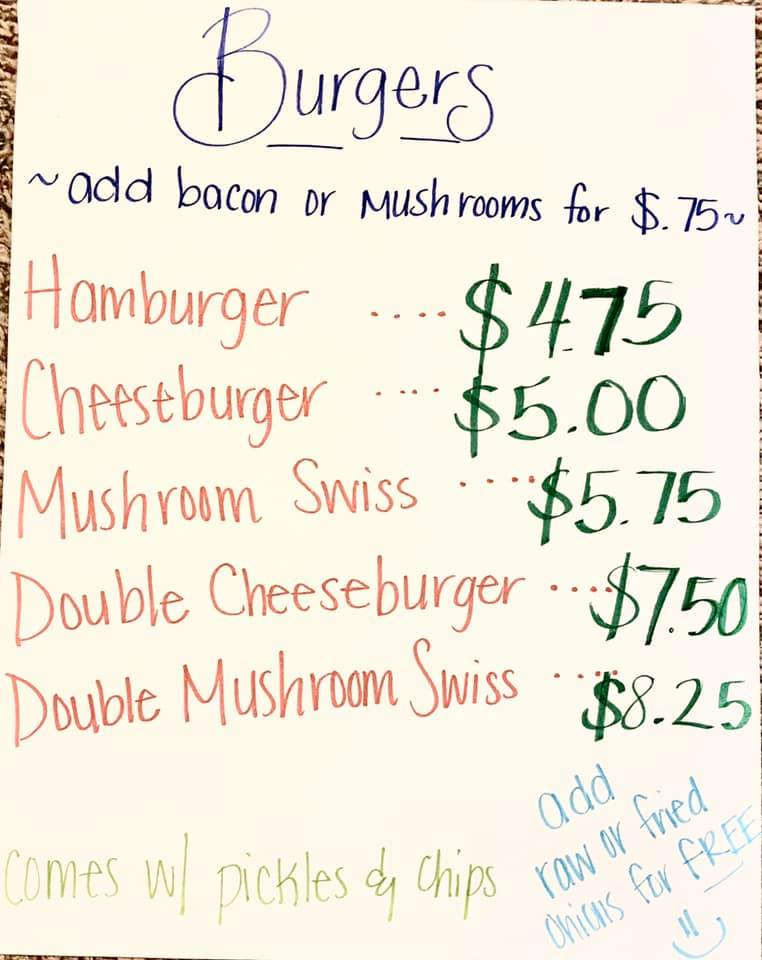 Burgers
~add bacon or mushrooms for $.75~
Hamburger .... $4.75
Cheeseburger .... $5.00
Mushroom Swiss .... $5.75
Double Cheeseburger .... $7.50
Double Mushroom Swiss .... $8.25
comes w/ pickles & chips
add
raw or fried
onions for FREE